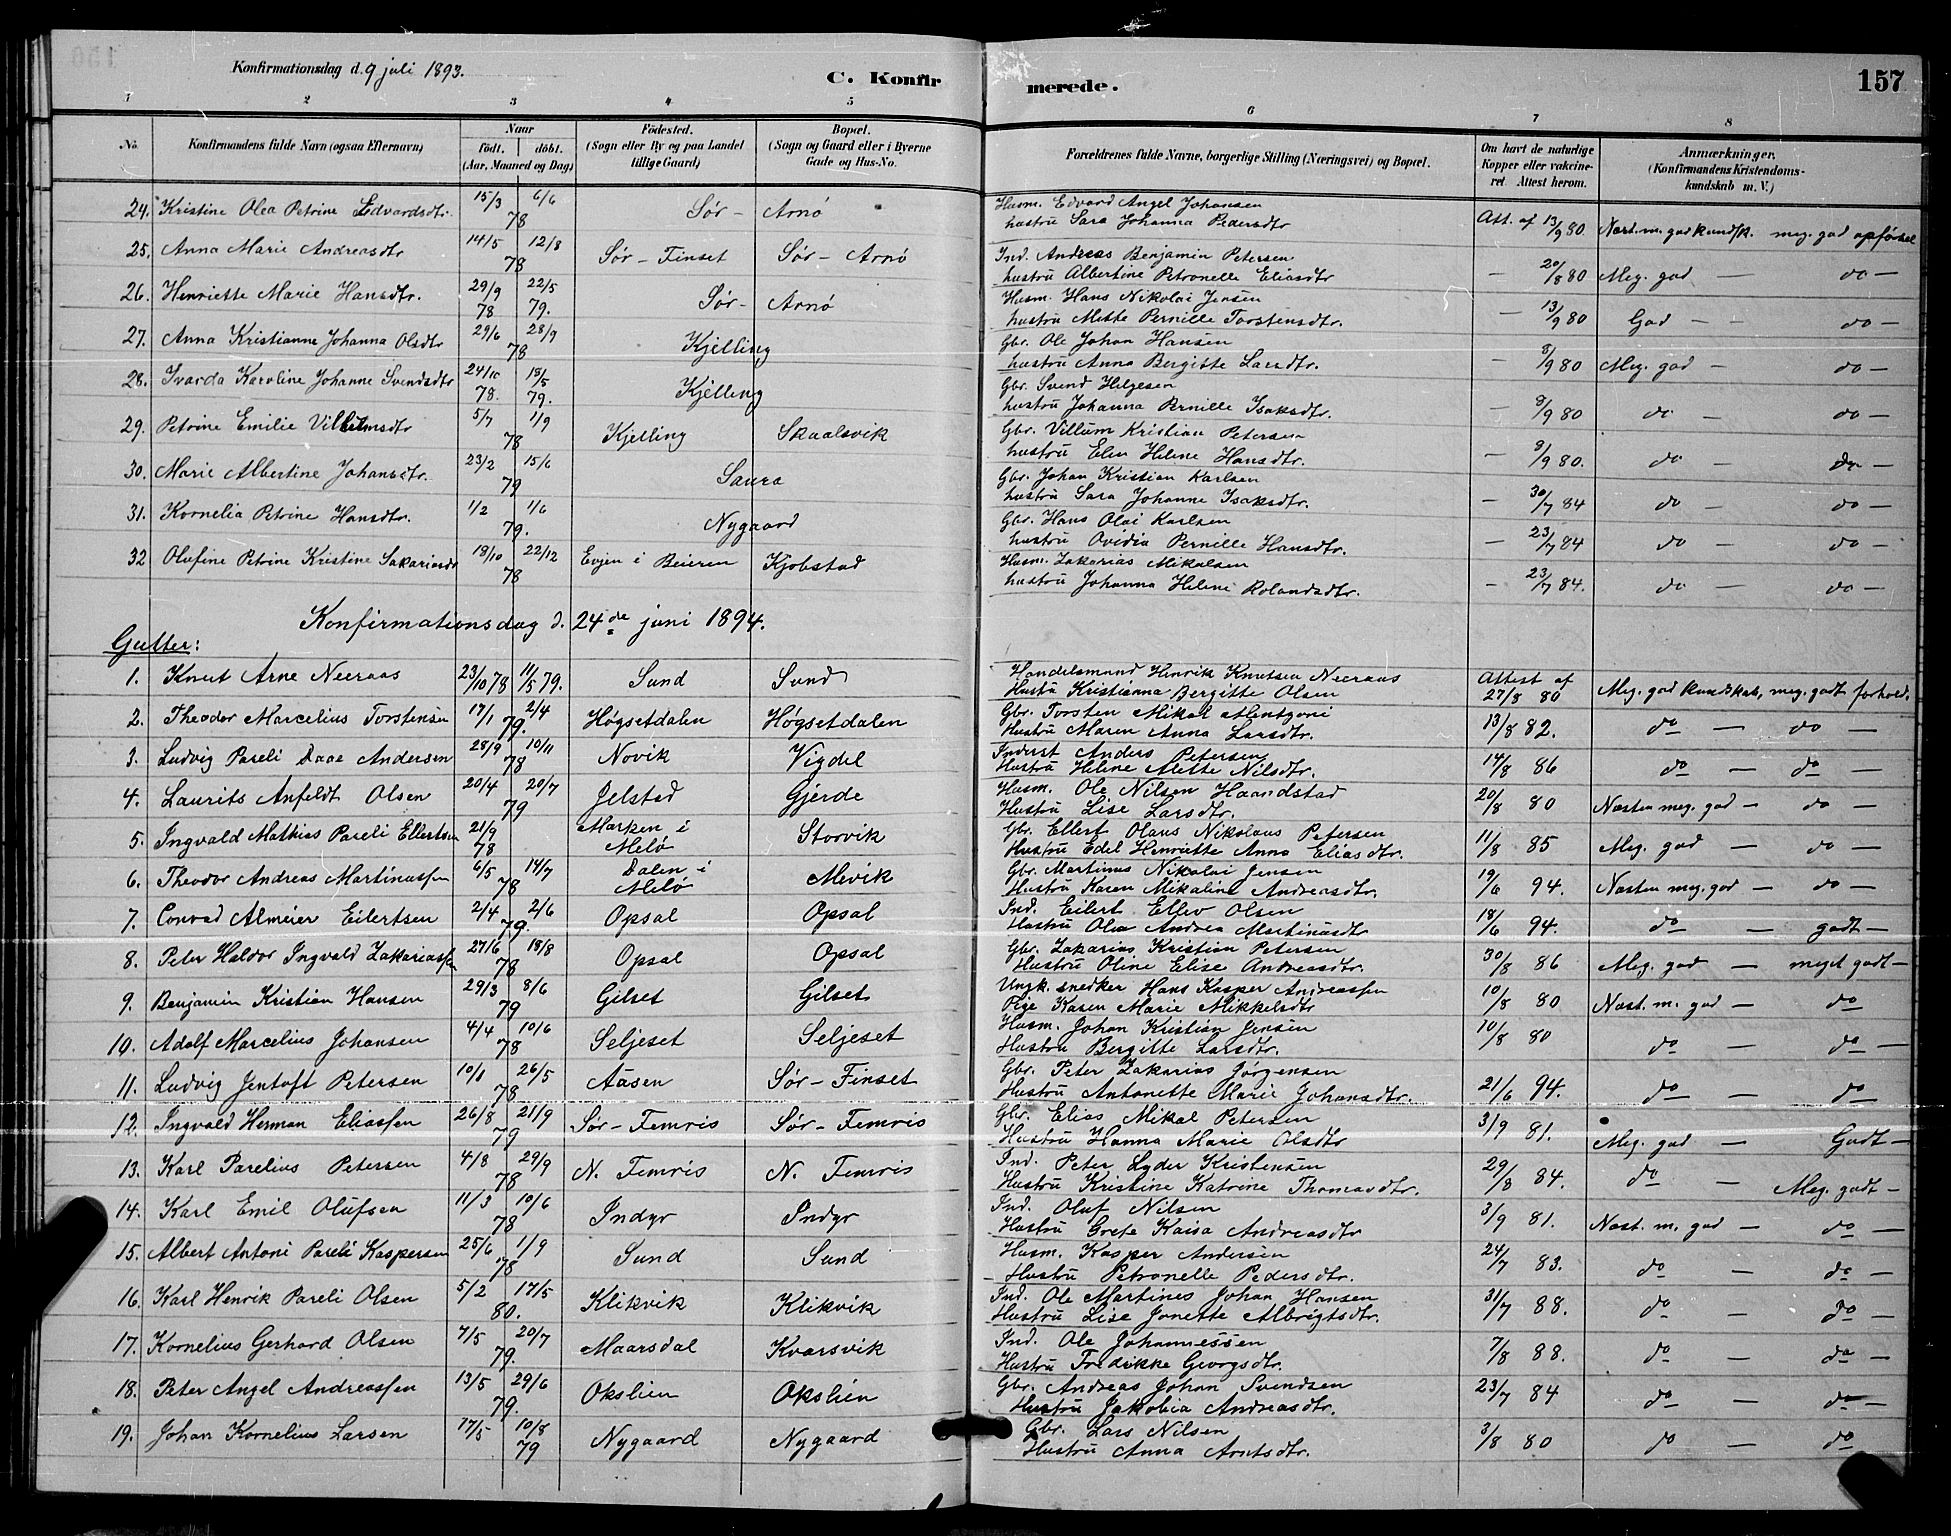 Konfirmationsdag d. 9 juli 1893.
C. Konfirmerede.
157
1 2 3 4 5 6 7 8
No. Konfirmandens fulde Navn (ogsaa Efternavn) Naar födt. döbt. (Aar, Maaned og Dag) Födested. (Sogn eller By og paa Landet tillige Gaard) Bopæl. (Sogn og Gaard eller i Byerne Gade og Hus-No. Forældrenes fulde Navne, borgerlige Stilling (Næringsvei) og Bopæl. Om havt de naturlige Kopper eller vakcineret Attest herom. Anmærkninger. (Konfirmandens Kristendomskundskab m. V.)
24. Kristine Olea Petrine Edvardsdtr. 15/3 6/6 78 Sør- Arnø Husm. Edvard Angel Johansen
hustru Sara Johanna Pedersdtr Att. af 13/9 80. Næst. m. god kundsk. meg. god opførsel
25. Anna Marie Andreasdtr 14/5 12/8 78 Sør-Finset Sør-Arnø Ind. Andreas Benjamin Petersen
hustru Albertine Petronelle Eliasdtr — 20/8 80 Meg. god — do —
26. Henriette Marie Hansdtr. 29/9 78 22/5 79. Sør- Arnø Husm. Hans Nikolai Jensen
hustru Mette Pernille Torstensdtr. — 13/9 80 God — — do —
27. Anna Kristianne Johanna Olsdtr 29/6 28/9 78 Kjelling Gbr. Ole Johan Hansen
hustru Anna Bergitte Larsdtr. — 8/9 80 Meg. god — do —
28. Ivarda Karoline Johanne Svendsdtr 24/10 78. 15/5 79. Kjelling Gbr. Svend Helgesen
hustru Johanna Pernille Isaksdtr. — 8/9 80 do — do —
29. Petrine Emilie Vilhelmsdtr 5/7 1/9 78 Kjelling Skaalsvik Gbr. Villum Kristian Petersen
hustru Elen Helene Hansdtr. — 8/9 80. do — do —
30. Marie Albertine Johansdtr. 23/2 15/6 79 Saura Gbr. Johan Kristian Karlsen
hustru Sara Johanne Isaksdtr. — 30/7 84 do — do —
31. Kornelia Petrine Hansdtr. 1/2 1/6 79. Nygaard Gbr. Hans Olai Karlsen
hustru Ovidia Pernille Hansdtr. — 23/7 84 do — do —
32 Olufine Petrine Kristine Sakariasdtr 18/10 22/12 78 Evjen i Beieren Kjøbstad Husm. Zakarias Mikalsen
hustru Johanna Helene Rolandsdtr. — 23/7 84. do — do —
Konfirmationsdag d. 24de juni 1894.
Gutter:
1. Knut Arne Neeraas 23/10 78 11/5 79. Sund Sund Handelsmand Henrik Knutsen Neeraas
Hustru Kristianna Bergitte Olsen Attest af 27/8 80 Meg. god kundskab, meg. godt forhold.
2. Theodor Marcelius Torstensen 17/1 2/4 79. Høgsetdalen Høgsetdalen Gbr. Torsten Mikal Mentzoni
Hustru Maren Anna Larsdtr. 13/8 82. do — do —
3. Ludvig Pareli Daae Andersen 28/9 10/11 78 Novik Vigdel Inderst Anders Petersen
Hustru Helene Mette Nilsdtr. 14/8 86 do — do —
4. Laurits Anfeldt Olsen 20/4 20/7 79 Jelstad Gjerde Husm. Ole Nilsen Haandstad
Hustru Lise Larsdtr. 20/8 80 Næsten meg. god — do —
5. Ingvald Mathias Pareli Ellertsen 21/9 78 Marken i Melø Storvik Gbr. Ellert Olaus Nikolaus Petersen
Hustru Edel Henriette Anna Eliasdtr. 11/8 85 Meg. god — do —
6. Theodor Andreas Martinussen 6/5 14/7 78 Dalen i Melø Mevik Gbr. Martinus Nikolai Jensen
Hustru Karen Mikaline Andreasdtr. 19/6 94. Næsten meg. god — do —
7. Conrad Almeier Eilertsen 2/4 2/6 79. Opsal Opsal Ind. Eilert Ellev Olsen
Hustru Olea Andrea Martinusdtr 18/6 94. do — godt —
8. Peter Haldor Ingvald Zakariassen 27/6 18/8 78 Opsal Opsal Gbr. Zakarias Kristian Petersen
Hustru Oline Elise Andreasdtr. 30/8 86 Meg. god — meget godt —
9. Benjamin Kristian Hansen 29/3 8/6 79 Gilset Gilset Ungk. snedker Hans Kasper Andreassen
Pige Karen Marie Mikkelsdtr 10/8 80 Næst. m. god — do
10. Adolf Marcelius Johansen 4/4 10/6 78 Seljeset Seljeset Husm. Johan Kristian Jensen
Hustru Bergitte Larsdtr. 10/8 80 do — do —
11. Ludvig Jentoft Petersen 10/1 26/5 78 Aasen Sør-Finset Gbr. Peter Zakarias Jørgensen
Hustru Antonette Marie Johansdtr. 21/6 94. do — do
12. Ingvald Herman Eliassen 26/8 21/9 79 Sør-Femris Sør-Femris Gbr. Elias Mikal Petersen
Hustru Hanna Marie Olsdtr 3/9 81. Meg. god — Godt —
13. Karl Parelius Petersen 4/8 29/9 78 N. Femris N. Femris Ind. Peter Lyder Kristensen
Hustru Kristine Katrine Thomasdtr. 29/8 84. do — Meg. godt —
14. Karl Emil Olufsen 11/3 10/6 78 Indyr Indyr Ind. Oluf Nilsen
Hustru Grete Kaisa Andreasdtr 3/9 81. Næst. m. god — do —
15. Albert Antoni Pareli Kaspersen 25/6 1/9 78 Sund Sund Husm. Kasper Andersen
Hustru Petronelle Pedersdtr. 24/7 83. do — do —
16. Karl Henrik Pareli Olsen 5/2 17/5 80. Klikvik Klikvik Ind. Ole Martines Johan Hansen
Hustru Lise Jonette Albregtsdtr. 31/7 88. do — do —
17. Kornelius Gerhard Olsen 7/5 20/7 79. Maarsdal Kvarsvik Ind. Ole Johannessen
Hustru Fredikke Georgsdtr. 7/8 88. do — do —
18. Peter Angel Andreassen 13/5 29/6 79. Okslien Okslien Gbr. Andreas Johan Svendsen
Hustru Jakobia Andreasdtr. 23/7 84 do — do
19. Johan Kornelius Larsen 17/5 10/8 79 Nygaard Nygaard Gbr. Lars Nilsen
Hustru Anna Arntsdtr. 3/8 80 do — do